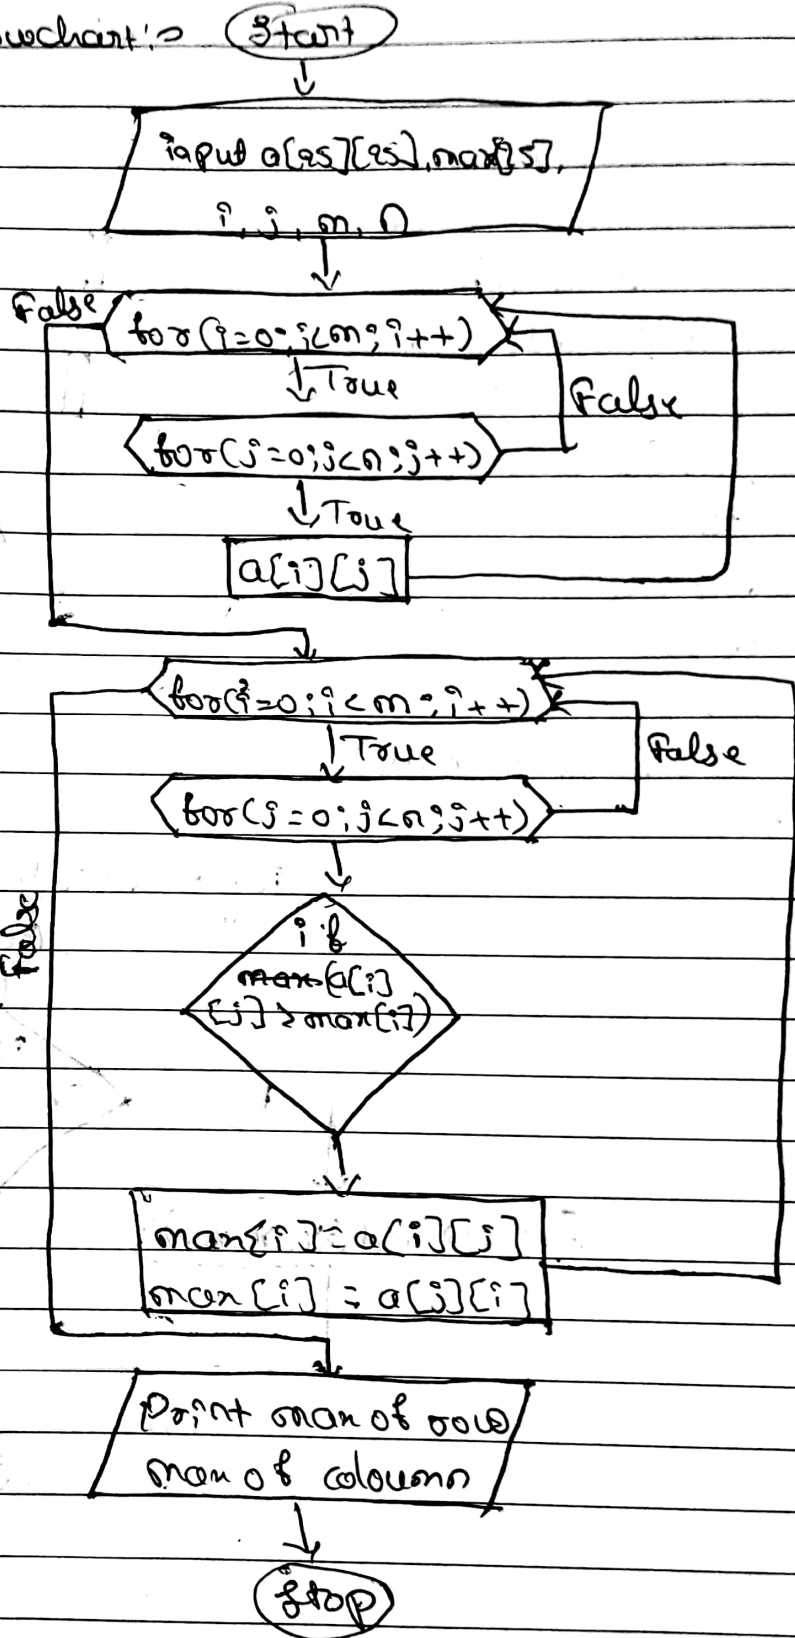 owchart:⇒ Start
input a[25][25], max[25],
i, j, m, n
False
for(i=0;i<m;i++)
True
False
for(j=0;j<n;j++)
True
a[i][j]
for(i=0;i<m;i++)
True
False
for(j=0;j<n;j++)
False
if
max(a[i]
[j]>max[i])
max[i]=a[i][j]
max[i] = a[j][i]
Print max of row
max of coloumn
Stop